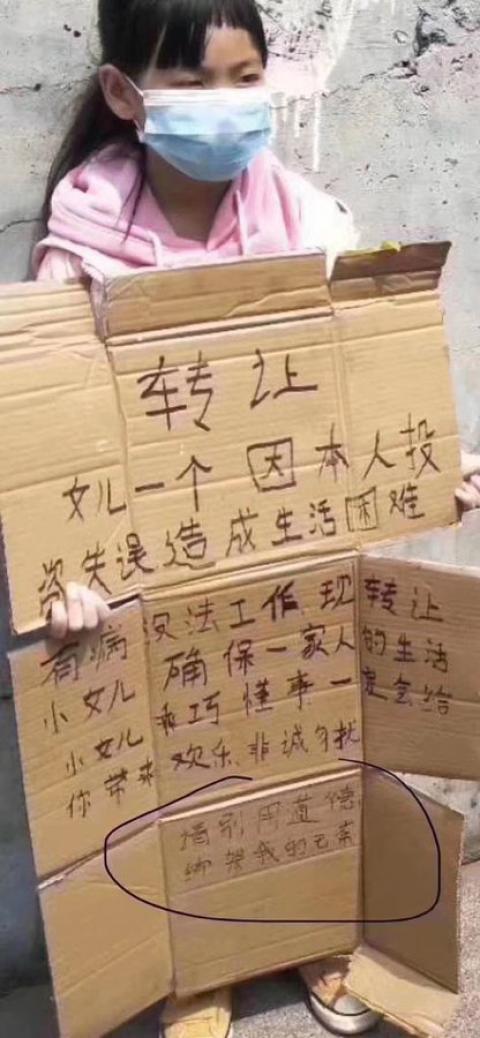 转让
女儿一个 因本人投
资失误造成生活困难
有病没法工作.现转让
小女儿 确保一家人的生活
小女儿 乖巧懂事一定会给
你带来 欢乐.非诚勿扰
请别用道德
绑架我的元素